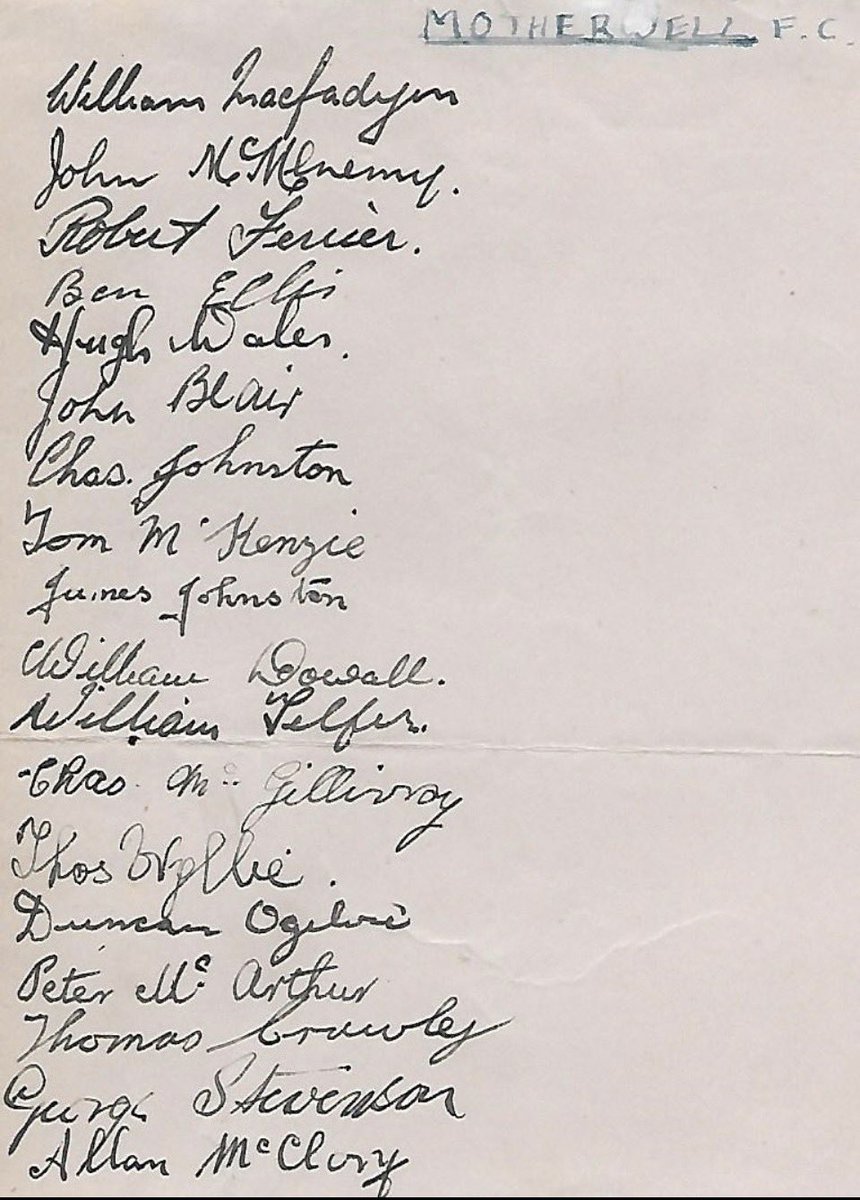 MOTHERWELL F.C.
William Macfadyen
John McMenemy.
Robert Ferrier.
Ben Ellis
Hugh Wales.
John Blair
Chas. Johnston
Tom McKenzie
James Johnston
William Dowall.
William Telfer.
Chas. Mc Gillivray
Thos Wyllie.
Duncan Ogilvie
Peter Mc Arthur
Thomas Crawley
George Stevenson
Allan McClory